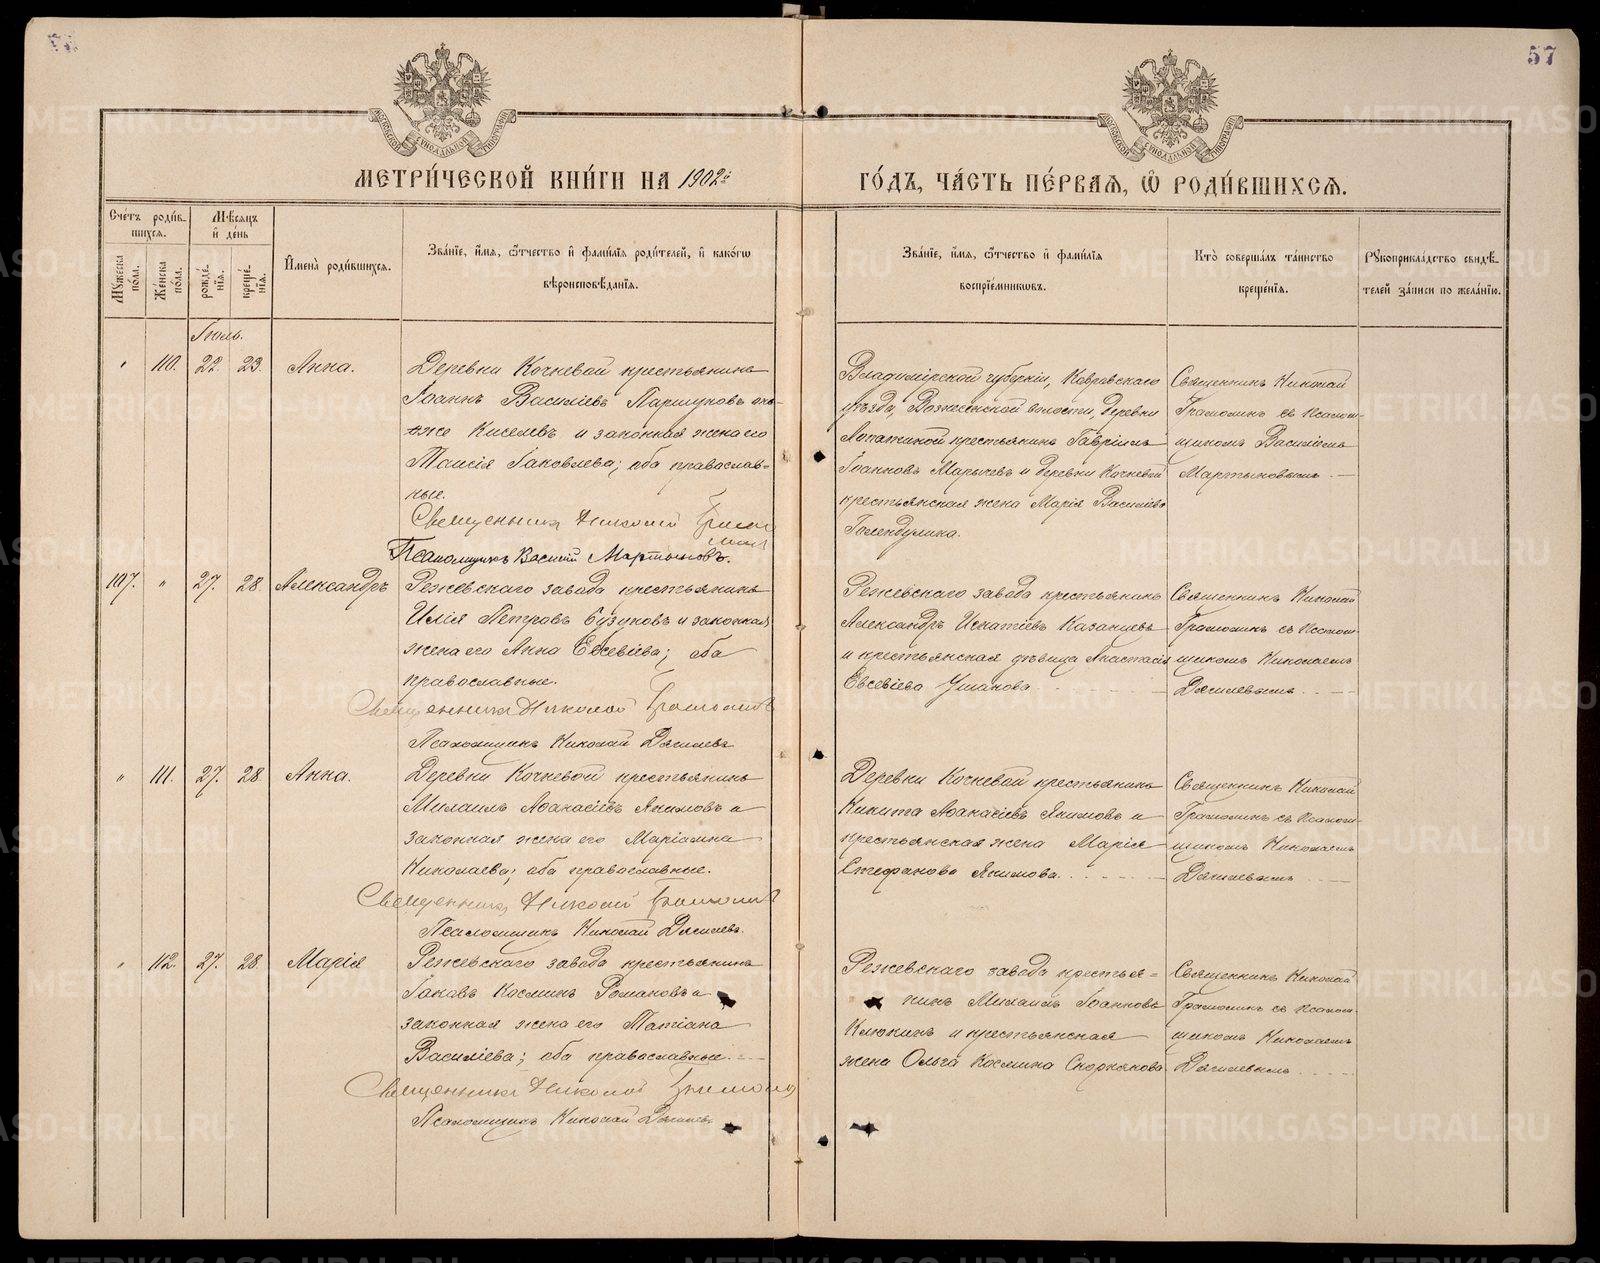 57
МЕТРИ́ЧЕСКОЙ КНИ́ГИ НА 1902й
ГО́ДЪ, ЧА́СТЬ ПЕ́РВАѦ, Ѡ҆ РОДИ́ВШИХСѦ.
Сче́тъ роди́в-
шихсѧ.
Мꙋ́жеска по́ла.
Же́нска по́ла.
Мѣ́сѧцъ
и҆ де́нь
рожде́-
нїѧ.
креще́-
нїѧ.
И҆мена̀ роди́вшихсѧ.
Зва́нїе, и҆́мѧ, ѻ҆́тчество и҆ фами́лїѧ роди́телей, и҆ како́гѡ
вѣроисповѣ́данїѧ.
Зва́нїе, и҆́мѧ, ѻ҆́тчество и҆ фами́лїѧ
воспрїе́мникѡвъ.
Кто̀ соверша́лъ та́инство
креще́нїѧ.
Рꙋкоприкла́дство свидѣ́-
телей за́писи по жела́нїю.
Іюль.
" 110. 22. 23. Анна.
Деревни Кочневой крестьянинъ
Іоаннъ Василіевъ Паршуковъ онъ-
же Киселевъ и законная жена его
Таисія Іаковлева; оба православ-
ные.
Священникъ Николай
Псаломщикъ Василій Мартыновъ.
Владимірской губерніи, Ковровскаго
уѣзда, волости, деревни
крестьянинъ Гавріилъ
Іоанновъ и деревни Кочневой
крестьянская жена Марія Василіева
Голендухина.
Священникъ Николай
съ псалом-
щикомъ Василіемъ
Мартыновымъ.
107. " 27. 28. Александръ
Режевскаго завода крестьянинъ
Илія Петровъ и законная
жена его Анна Евсевіева; оба
православные.
Священникъ Николай
Псаломщикъ Николай
Режевскаго завода крестьянинъ
Александръ Игнатіевъ Казанцевъ
и крестьянская дѣвица Анастасія
Евсевіева Ушакова.
Священникъ Николай
съ псалом-
щикомъ Николаемъ
" 111. 27. 28. Анна.
Деревни Кочневой крестьянинъ
Михаилъ Аѳанасіевъ Якимовъ и
законная жена его Маріамна
Николаева; оба православные.
Священникъ Николай
Псаломщикъ Николай
Деревни Кочневой крестьянинъ
Никита Аѳанасіевъ Якимовъ и
крестьянская жена Марія
Стефанова Якимова.
Священникъ Николай
съ псалом-
щикомъ Николаемъ
" 112. 27. 28. Марія
Режевскаго завода крестьянинъ
Іаковъ Косминъ Романовъ и
законная жена его Татіана
Василіева; оба православные.
Священникъ Николай
Псаломщикъ Николай
Режевскаго завода крестья-
нинъ Михаилъ Іоанновъ
Клюкинъ и крестьянская
жена Ольга Космина
Священникъ Николай
съ псалом-
щикомъ Николаемъ
METRIKI.GASO-URAL.RU